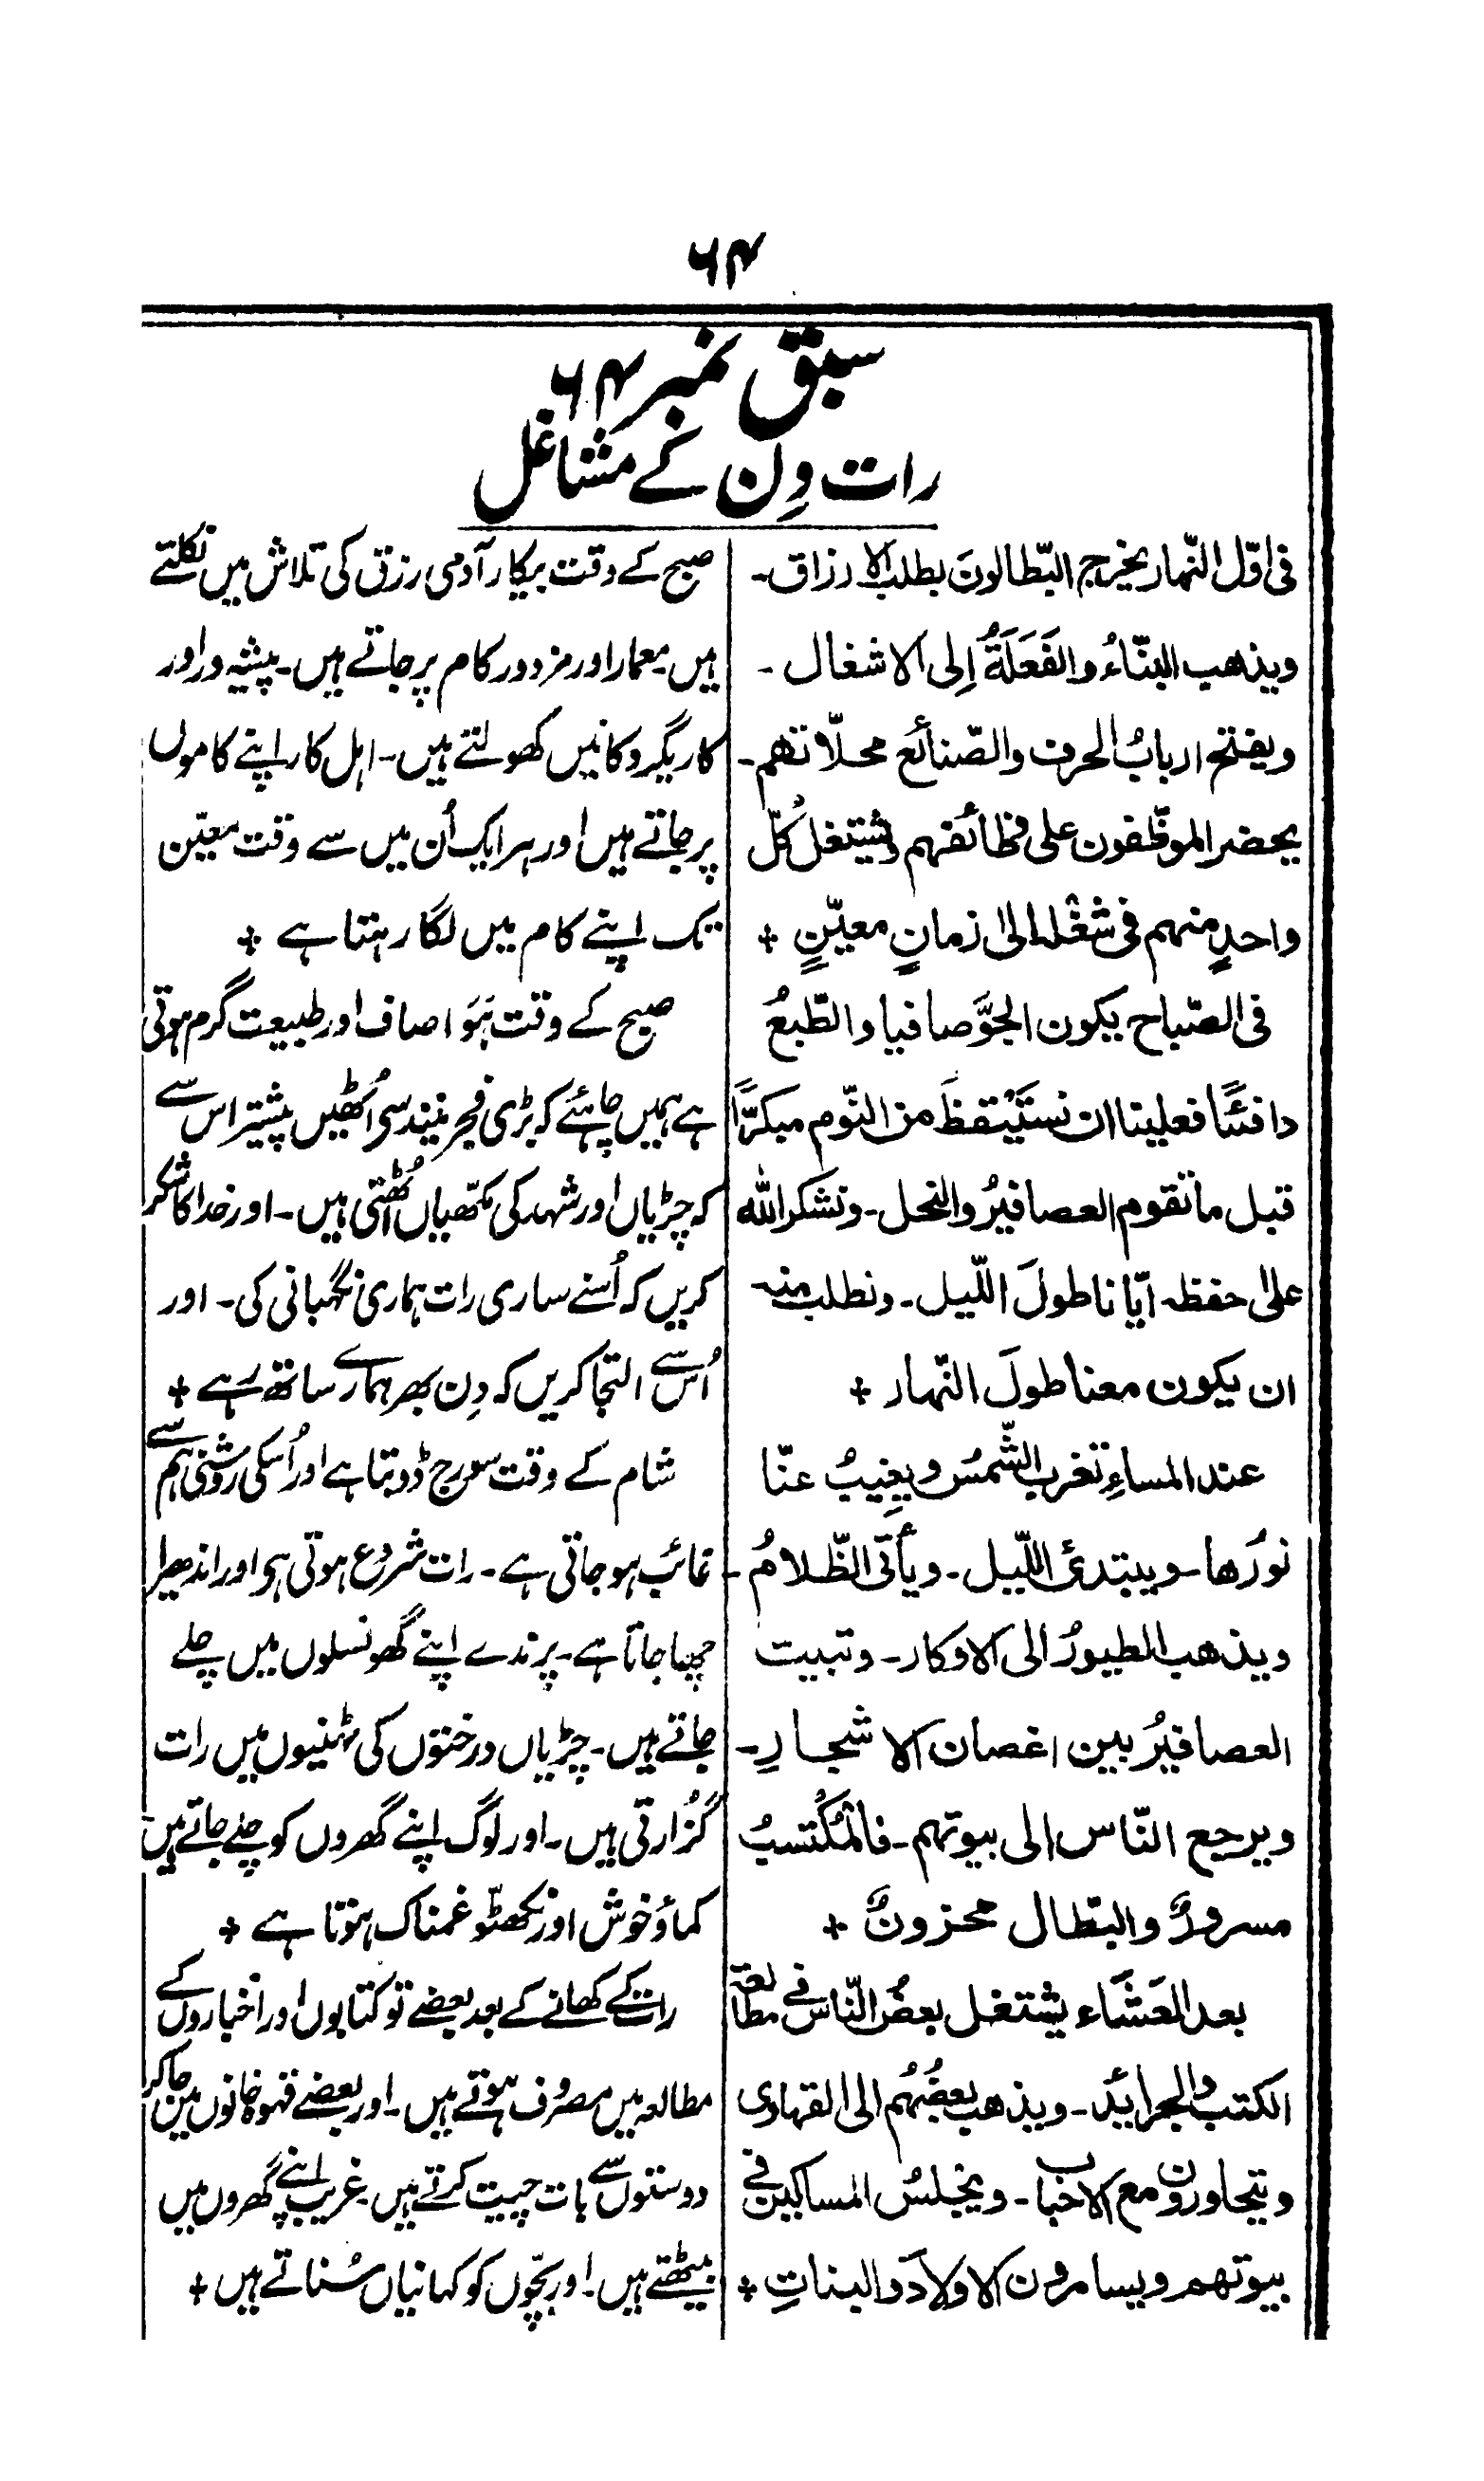 ۶۴
سبق نمبر ۶۴
رات دِن کے مشاغل
فی اوّل النّهار یخرج البطّالونَ بطلب الارزاق۔
ویذهب البنّاءُ والفَعَلَةُ اِلی الاشغال۔
ویفتح اربابُ الحرف والصّنائع محلّاتهم۔
یحضر الموظّفون علی وظائفهم ویشتغل کُلّ
واحدٍ منهم فی شُغْله الیٰ زمانٍ معیّنٍ +
فی الصّباح یکون الجوَّ صافیا والطّبعُ
دافئًا فعلینا ان نستَیْقظَ من النّوم مبکرًّا
قبل ما تقوم العصافیرُ والنحل۔ ونشکر الله
علیٰ حفظه ایّانا طولَ اللّیل۔ ونطلب منه
ان یکون معنا طولَ النّهار +
عند المساءِ تغرب الشّمسُ ویغیبُ عنّا
نورُها۔ ویبتدئ اللّیل۔ ویأتی الظّلامُ۔
ویذهب الطیورُ الی الاوکار۔ وتبیت
العصافیرُ بین اغصان الاشجارِ۔
ویرجع النّاس الی بیوتهم۔ فالْمُکْتسبُ
مسرورٌ والبطّال محزونٌ +
بعد العَشَاء یشتغل بعضُ النّاس فی مطالعة
الکتب والجرائد۔ ویذهب بعضُهُم الی القهاوی
ویتحاورون مع الاحباب۔ ویجلسُ المساکین فی
بیوتهم ویسامرون الاولادَ والبناتِ +
صبح کے وقت بیکار آدمی رزق کی تلاش میں نکلتے
ہیں۔ معمار اور مزدور کام پر جاتے ہیں۔ پیشہ ور اور
کاریگر دکانیں کھولتے ہیں۔ اہل کار اپنے کاموں
پر جاتے ہیں اور ہر ایک اُن میں سے وقت معیّن
تک اپنے کام میں لگا رہتا ہے +
صبح کے وقت ہَوَا صاف اور طبیعت گرم ہوتی
ہے ہمیں چاہئے کہ بڑی فجر نیند سی اُٹھیں پیشتر اس سے
کہ چڑیاں اور شہد کی مکّھیاں اُٹھتی ہیں۔ اور خدا کا شکر
کریں کہ اُسنے ساری رات ہماری نگہبانی کی۔ اور
اُس سے التجا کریں کہ دِن بھر ہمارے ساتھ رہے +
شام کے وقت سورج ڈوبتا ہے اور اُسکی روشنی ہم سے
غائب ہو جاتی ہے۔ رات شروع ہوتی ہی اور اندھیرا
چھا جاتا ہے۔ پرندے اپنے گھونسلوں میں چلے
جاتے ہیں۔ چڑیاں درختوں کی ٹہنیوں میں رات
گُزارتی ہیں۔ اور لوگ اپنے گھروں کو چلے جاتے ہیں
کماؤ خوش اور نکھٹّو غمناک ہوتا ہے +
رات کے کھانے کے بعد بعضے تو کتابوں اور اخباروں کے
مطالعہ میں مصروف ہوتے ہیں۔ اور بعضے قہوہ خانوں میں جا کر
دوستوں سے بات چیت کرتے ہیں۔ غریب اپنے گھروں میں
بیٹھتے ہیں۔ اور بچّوں کو کہانیاں سُناتے ہیں +